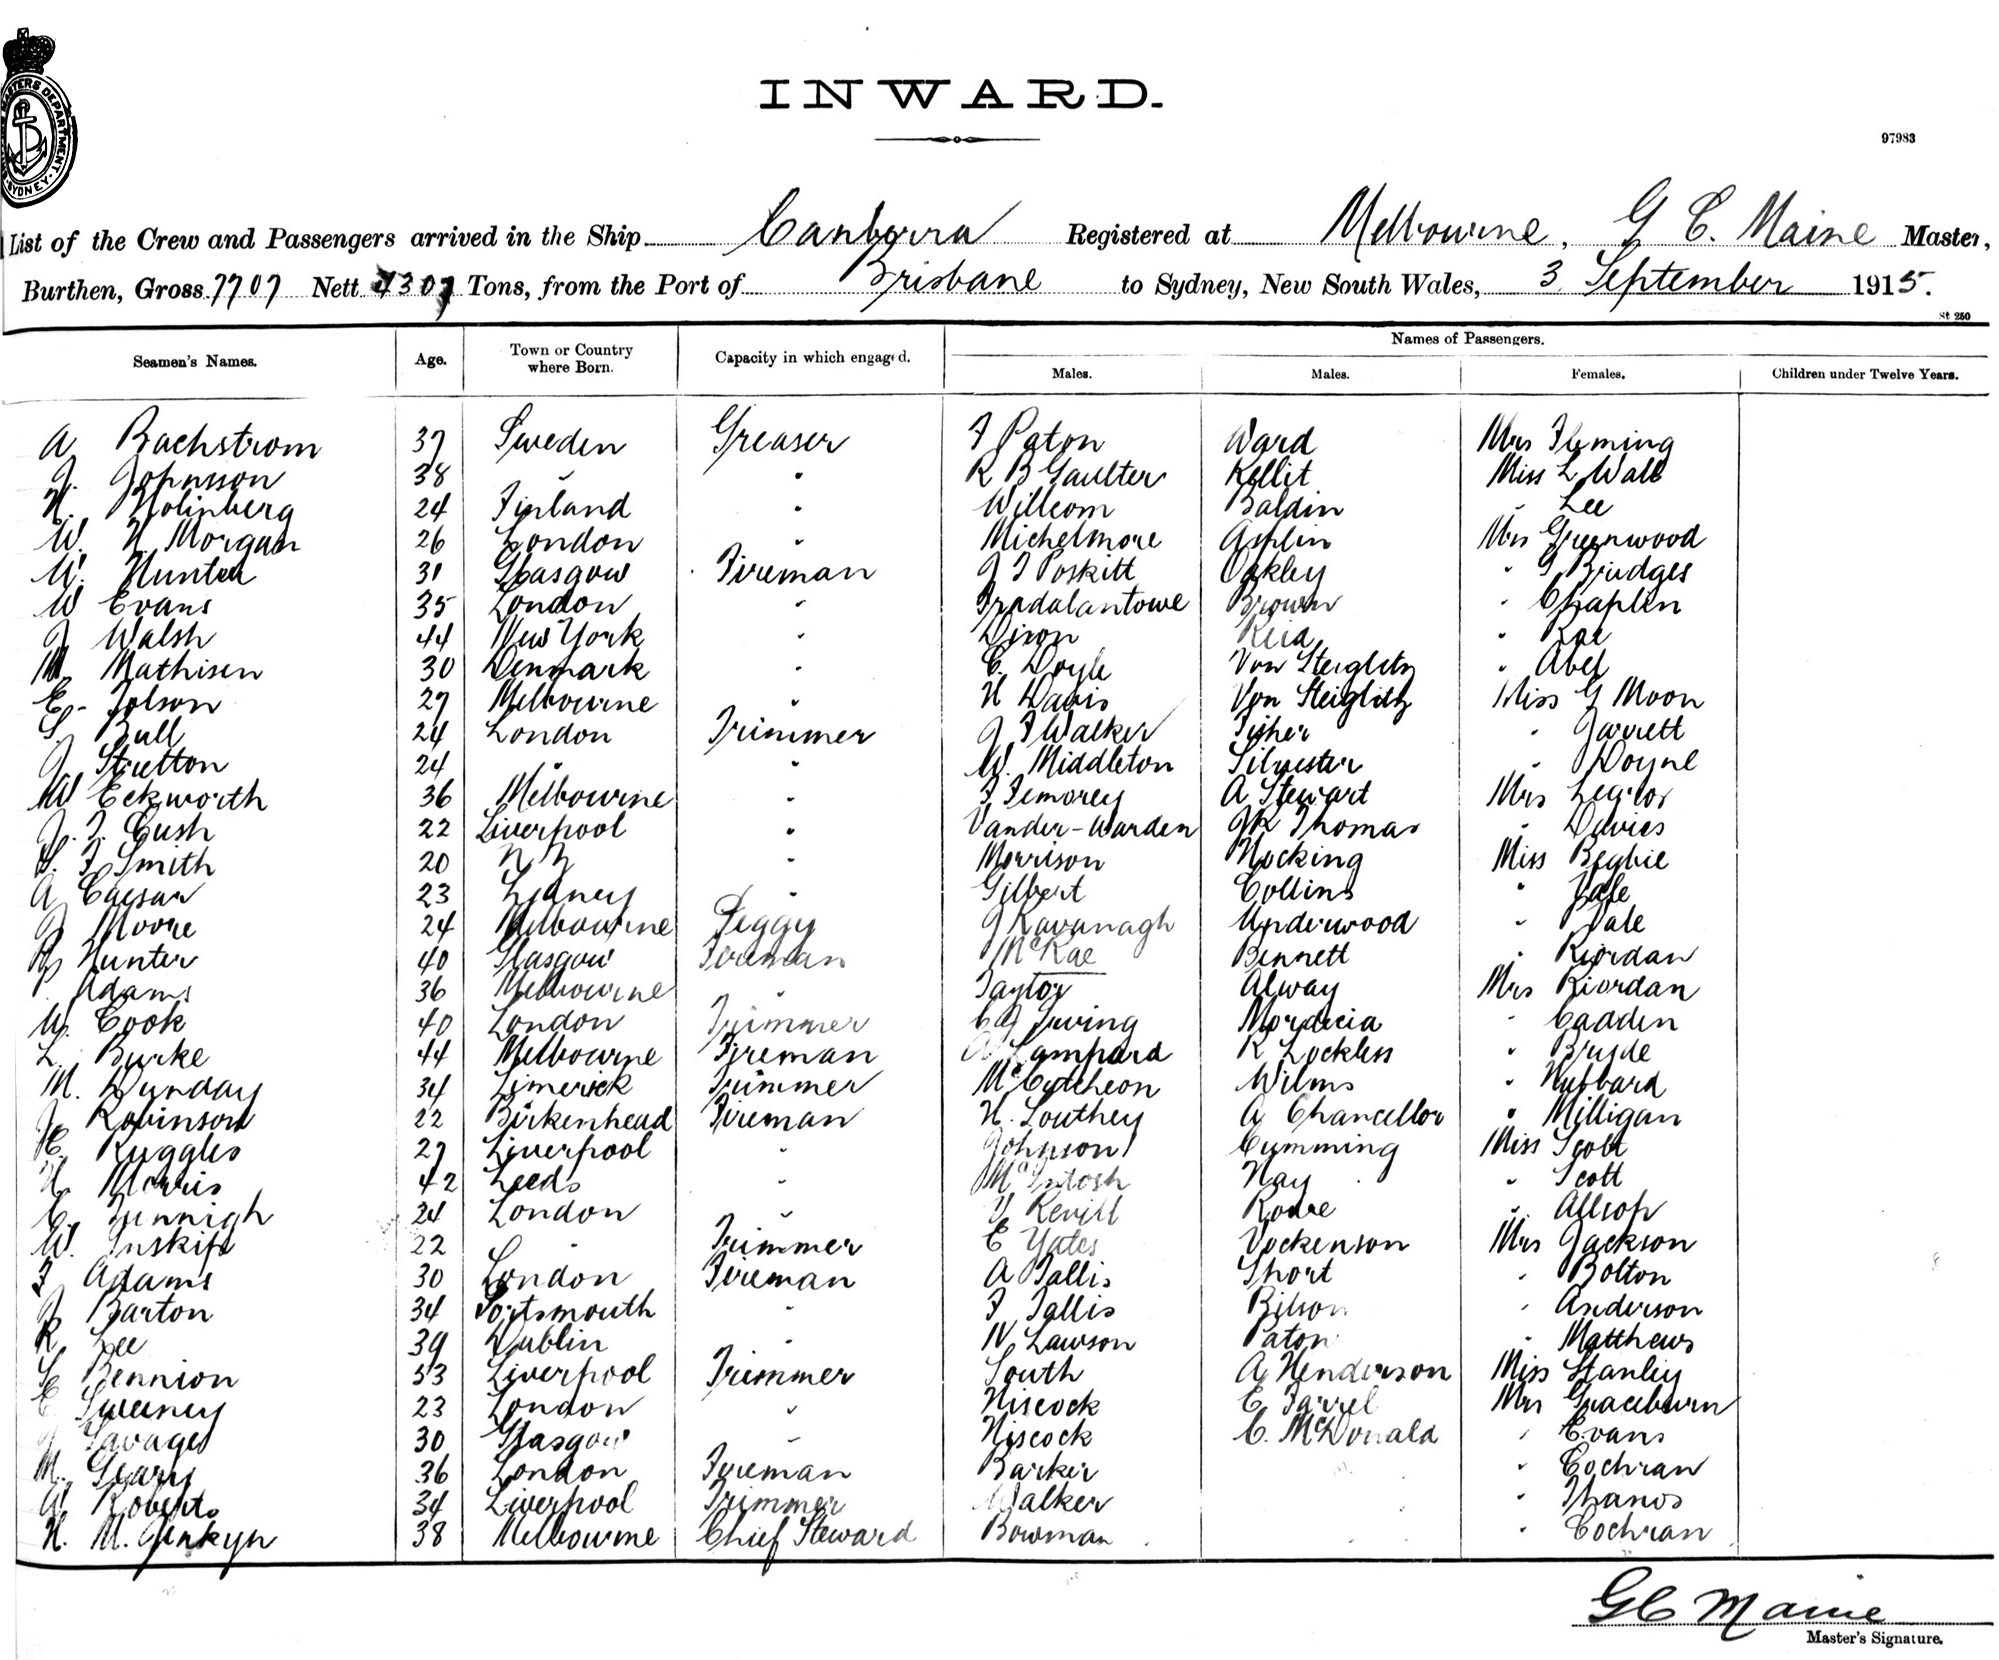 INWARD.
97983
MASTERS DEPARTMENT. SYDNEY.
List of the Crew and Passengers arrived in the Ship Canberra Registered at Melbourne, G C. Maine Master,
Burthen, Gross 7707 Nett 4307 Tons, from the Port of Brisbane to Sydney, New South Wales, 3 September 1915.
St 250
Names of Passengers.
Seamen's Names. Age. Town or Country where Born. Capacity in which engaged. Males. Males. Females. Children under Twelve Years.
A Bachstrom 37 Sweden Greaser F Paton Ward Mrs Fleming
J. Johnsson 38 " " R B Gaulter Kellit Miss L Wall
H. Holmberg 24 Finland " Willcom Baldin " Lee
W. H. Morgan 26 London " Michelmore Asplin Mrs Greenwood
W. Hunter 31 Glasgow Fireman J T Poskitt Oakley " G Bridges
W Evans 35 London " Brown " Chaplin
J Walsh 44 New York " Dixon Reid " Rae
M. Mathisen 30 Denmark " C. Doyle Von Steiglitz " Abel
E. Tolson 27 Melbourne " H Davis Von Steiglitz Miss G Moon
S. Bull 24 London Trimmer J F Walker Fisher " Jarrett
J Stretton 24 " " W. Middleton Silvester " Doyne
W Eckworth 36 Melbourne " F Femorey A Stewart Mrs
J. T. Cush 22 Liverpool " Vander-Warden J K Thomas " Davies
S. F Smith 20 N Z " Morrison Hocking Miss Begbie
A Caesar 23 Sydney " Gilbert Collins " Yale
J Moore 24 Melbourne Peggy J Kavanagh Underwood " Vale
Hunter 40 Glasgow Fireman McRae Bennett " Riordan
Adams 36 Melbourne " Taylor Alway Mrs Riordan
W. Cook 40 London Trimmer C J Irving Mordecia " Cadden
L. Burke 44 Melbourne Fireman A Lampard R Lockless " Bryde
M. Dunday 34 Limerick Trimmer McCutcheon Wilms " Hubbard
J. Robinson 22 Birkenhead Fireman H. Southey A Chancellor " Milligan
C. Ruggles 27 Liverpool " Johnson Cumming Miss Scott
H. Morris 42 Leeds " McIntosh Hay " Scott
C. 24 London " Revill Rowe " Allsop
W. Inskip 22 " Trimmer E Yates Vockenson Mrs Jackson
F Adams 30 London Fireman A Tallis Short " Bolton
J Barton 34 Portsmouth " F Tallis Bilson " Anderson
R Lee 39 Dublin " W Lawson Paton " Matthews
S Bennion 33 Liverpool Trimmer South A Henderson Miss Stanley
E Sweeney 23 London " Hiscock E Farrel Mrs Graceburn
J Savage 30 Glasgow " Hiscock C. McDonald " Evans
M. Geary 36 London Fireman Barker " Cochran
W. Roberts 34 Liverpool Trimmer Walker " Thanos
H. M. Jenkyn 38 Melbourne Chief Steward Bowman " Cochran
G C Maine
Master's Signature.